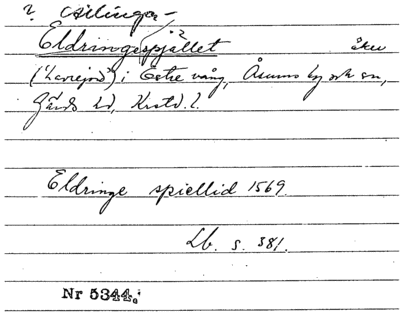 ?
Eldringespjället åker
i Östre vång, Åsums by och sn,
Gärds hd, Krstd. l.
Eldringe spiellid 1569.
Lb. s. 381.
Nr 5344.